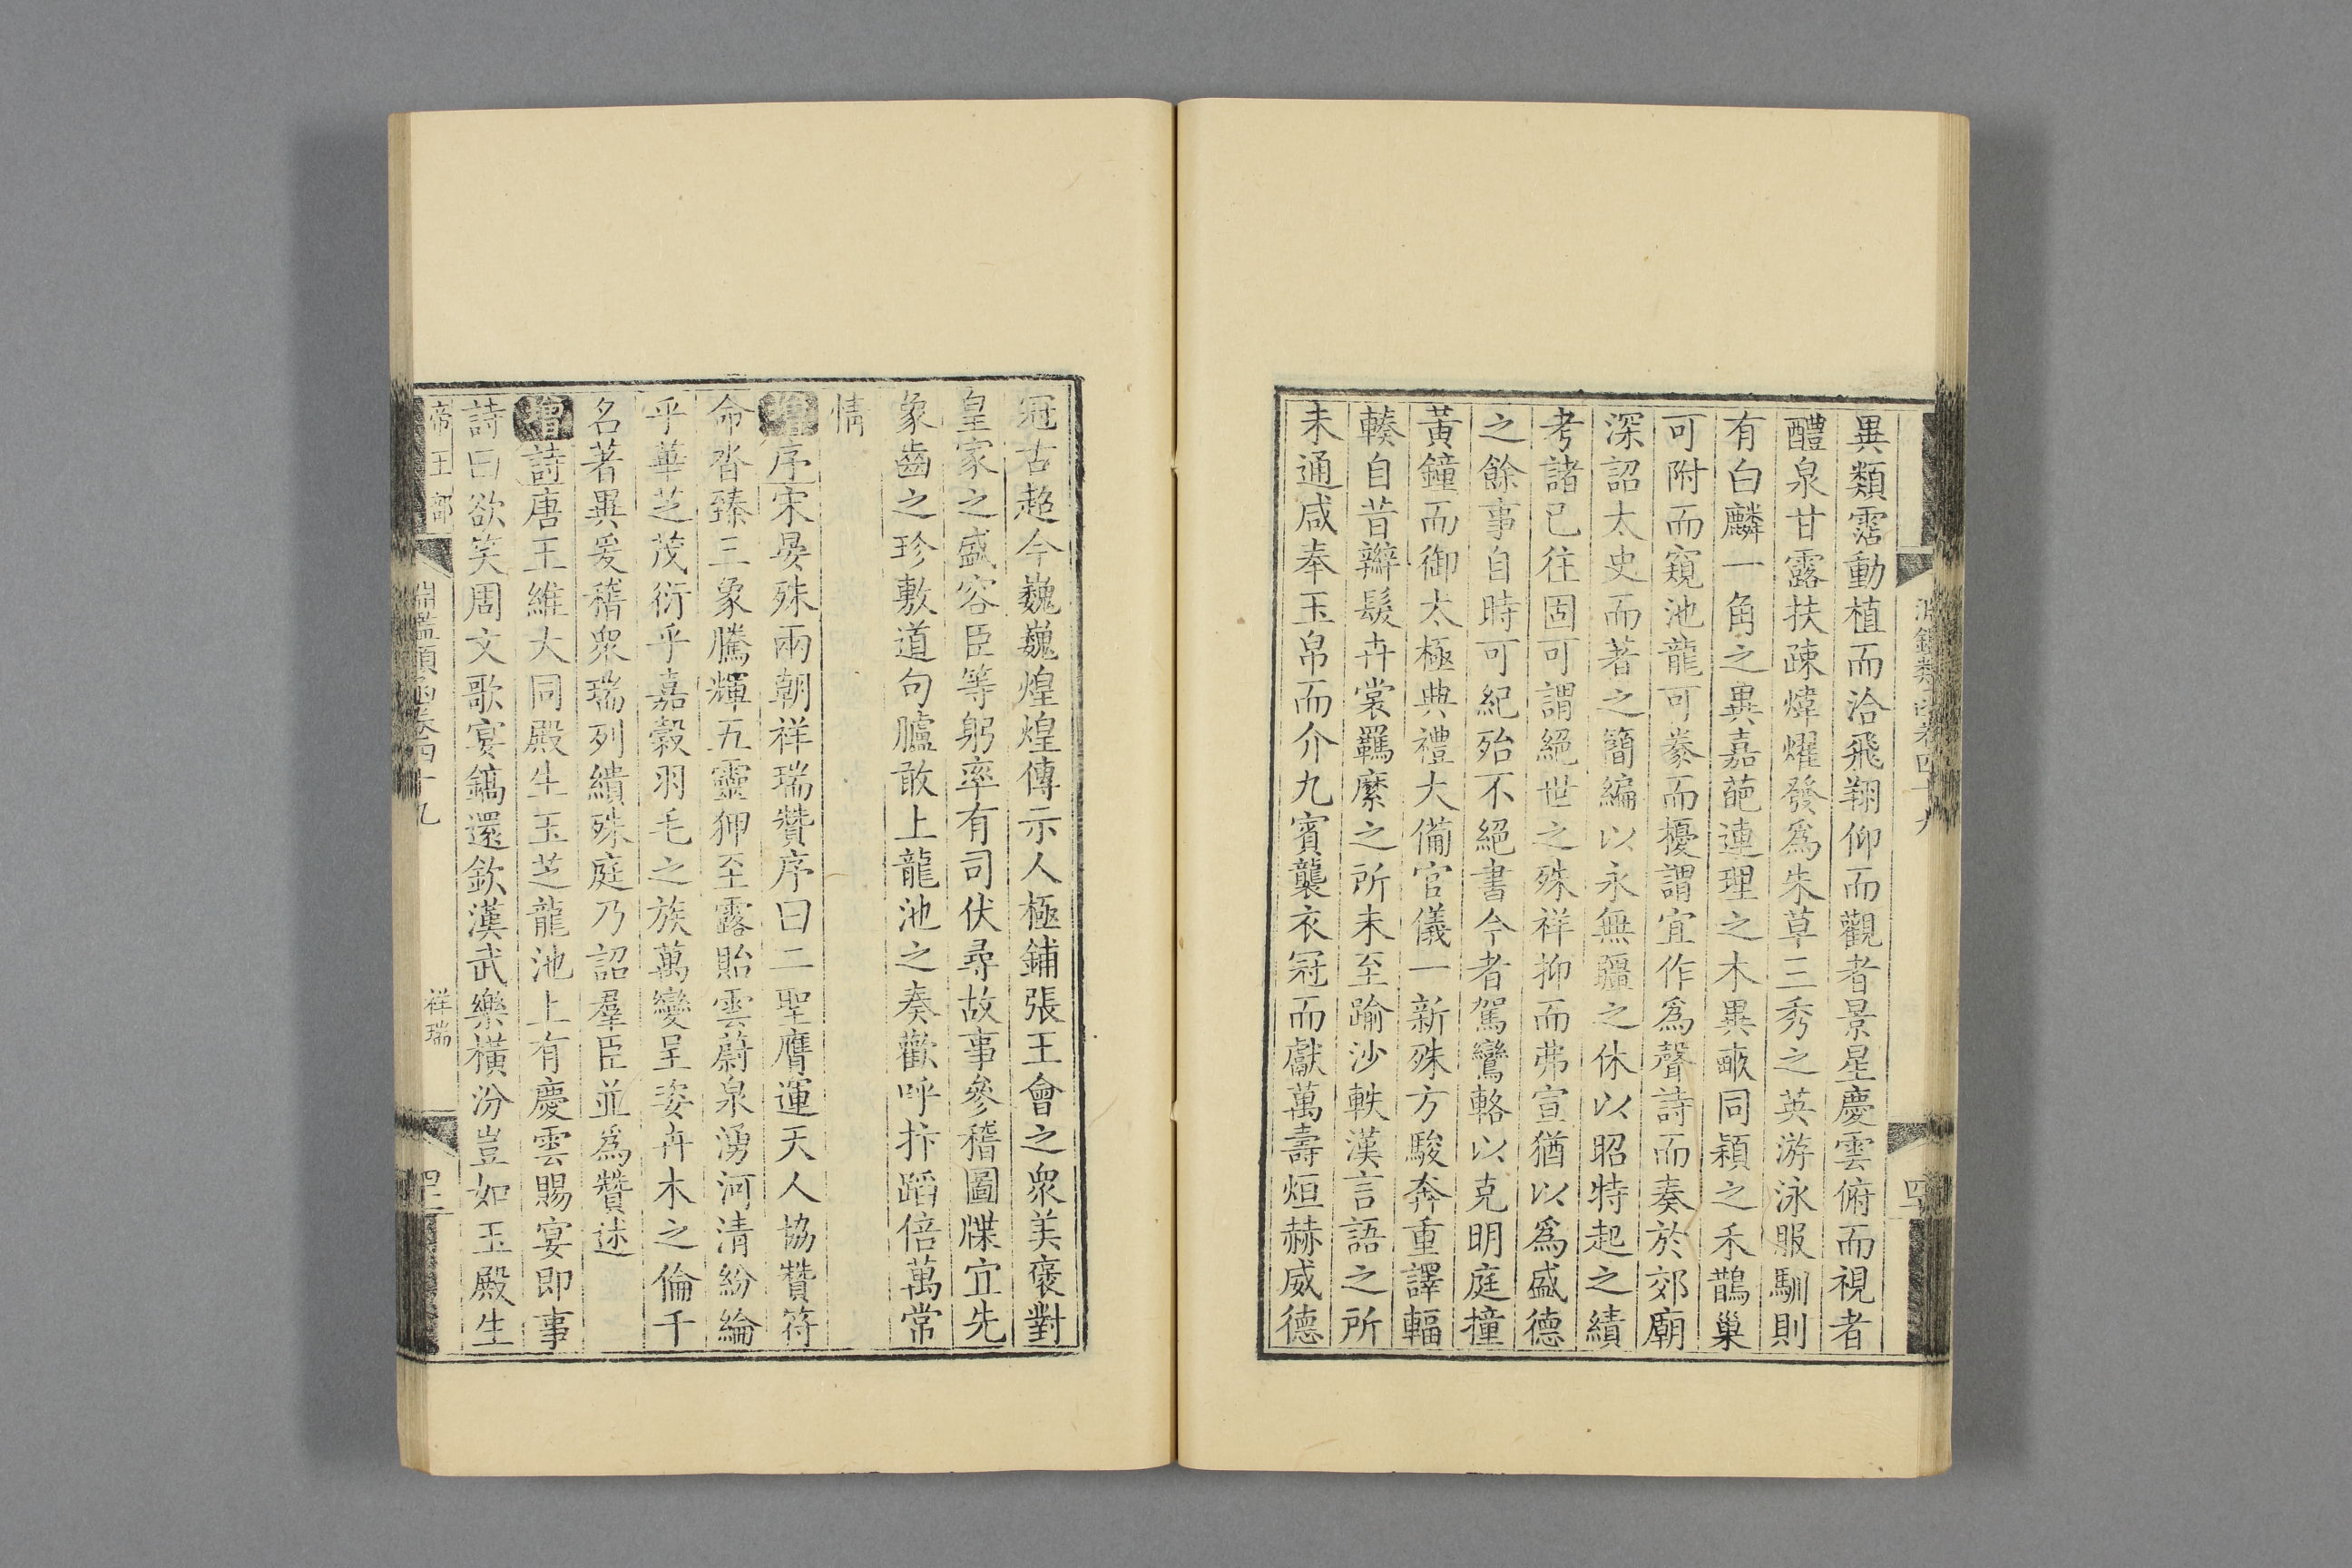 異類霑動植而洽飛翔仰而觀者景星慶雲俯而視者
醴泉甘露扶疎煒燿發爲朱草三秀之英游泳服馴則
有白麟一角之異嘉葩連理之木異畝同穎之禾鵲巢
可附而窺池龍可豢而擾謂宜作爲聲詩而奏於郊廟
深詔太史而著之簡編以永無疆之休以昭特起之績
考諸已往固可謂絕世之殊祥抑而弗宣猶以爲盛德
之餘事自時可紀殆不絕書今者駕鸞輅以克明庭撞
黃鐘而御太極典禮大備官儀一新殊方駿奔重譯輻
輳自昔辮髮卉裳羈縻之所未至踰沙軼漢言語之所
未通咸奉玉帛而介九賓襲衣冠而獻萬壽烜赫威德
冠古超今巍巍煌煌傳示人極鋪張王會之衆美褒對
皇家之盛容臣等躬率有司伏尋故事參稽圖牒宜先
象齒之珍敷道句臚敢上龍池之奏歡呼抃蹈倍萬常
情
增序宋晏殊兩朝祥瑞贊序曰二聖膺運天人協贊符
命沓臻三象騰輝五靈狎至露貽雲蔚泉湧河清紛綸
乎華芝茂衍乎嘉穀羽毛之族萬變呈姿卉木之倫千
名著異爰稽衆瑞列繢殊庭乃詔羣臣並爲贊述
增詩唐王維大同殿生玉芝龍池上有慶雲賜宴即事
詩曰欲笑周文歌宴鎬還欽漢武樂橫汾豈如玉殿生
帝王部
淵鑑類函卷四十九
祥瑞